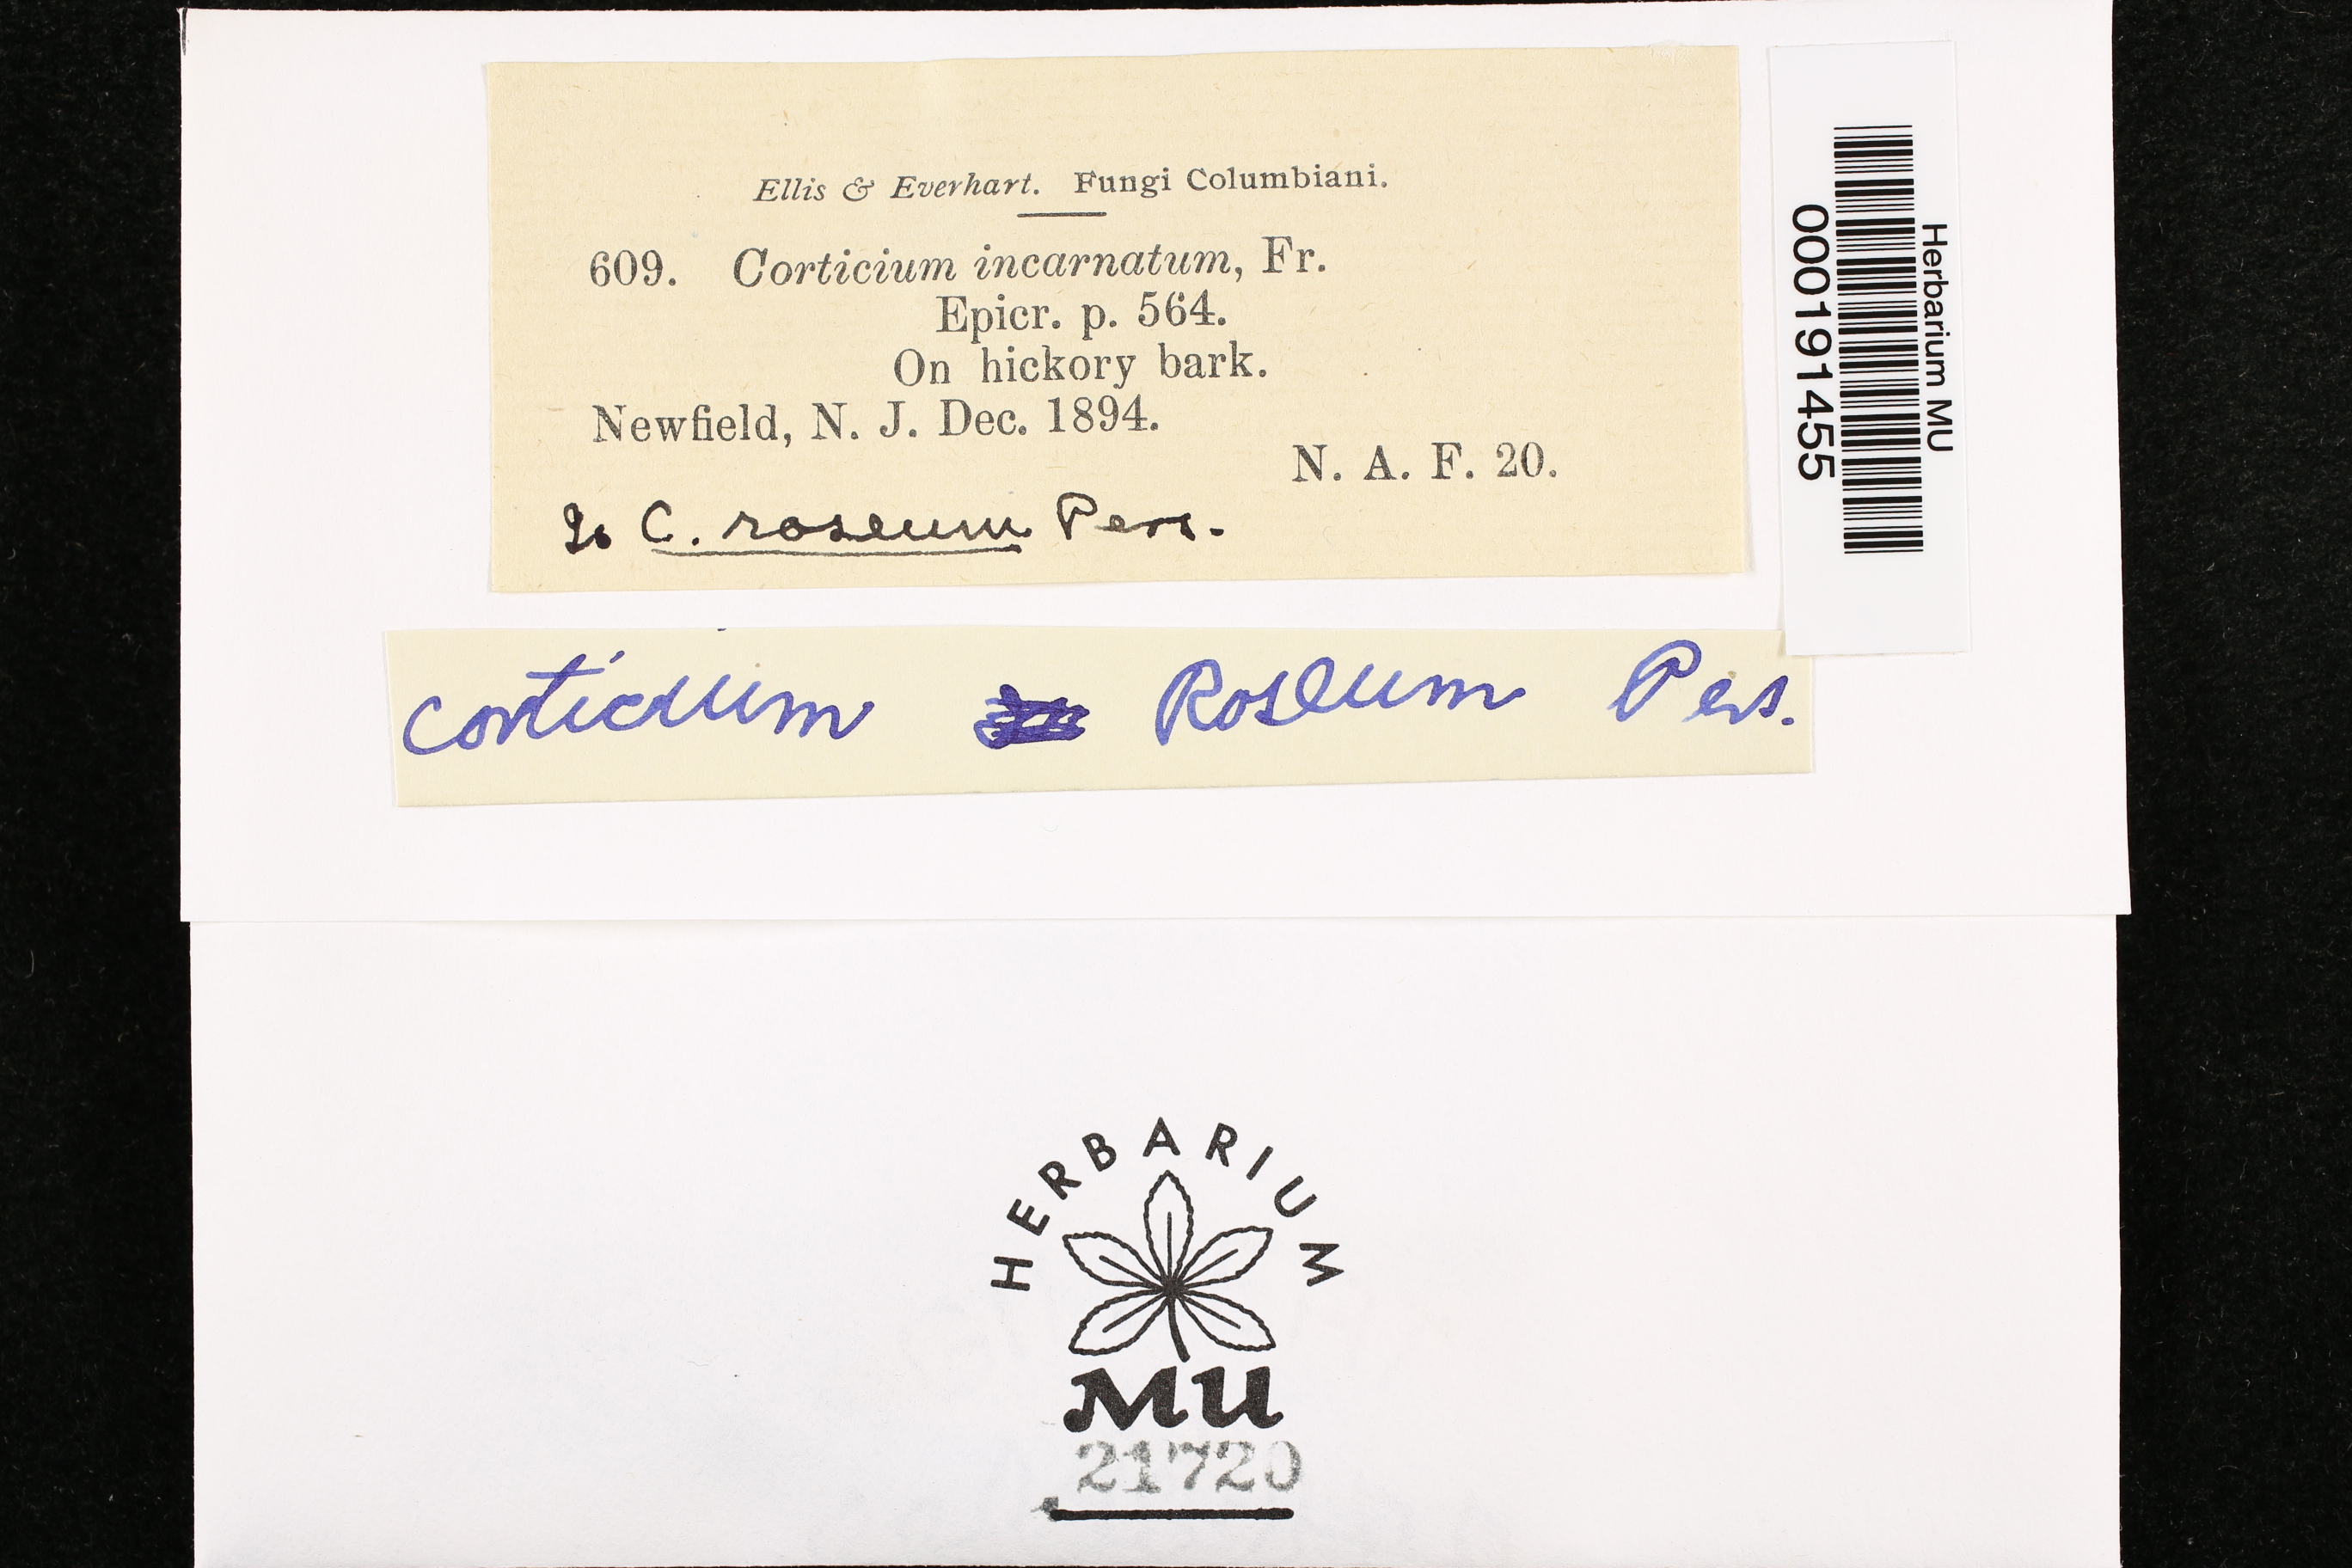 Ellis & Everhart. Fungi Columbiani.
609. Corticium incarnatum, Fr.
Epicr. p. 564.
On hickory bark.
Newfield, N. J. Dec. 1894.
N. A. F. 20.
Is C. roseum Pers.
Corticium Roseum Pers.
Herbarium MU
000191455
HERBARIUM
MU
21720